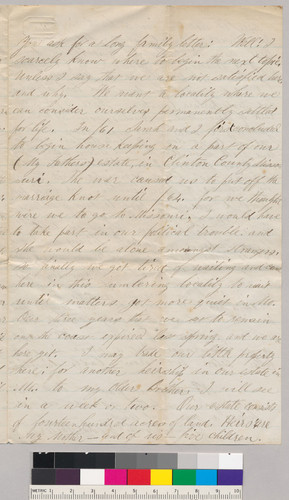 You ask for a long family letter. Well! I
scarcely know where to begin the next topic
Unless I say that we are not satisfied here
and why. We want a locality where we
can consider ourselves permanently settled
for life. In /61, and I
to begin house keeping on a part of our
(My Fathers) estate, in Clinton County, Missouri
The war caused us to put off the
marriage knot until /64. for we thought
were we to go to Missouri, I would have
to take part in our political trouble and
she would be alone amongst strangers.
So finally we got tired of waiting and came
here in this watering locality to wait
until matters got more quiet in Mo.
Our two years that we to remain
expired last spring and we are
here yet. I may trade our little property
here, for another interest in our estate in
Mo. to my Oldest brother. I will see
in a week or two. Our estate consists
of fourteen hundred acres of land. Heirs are
My Mother and of us five children.
METRIC 1